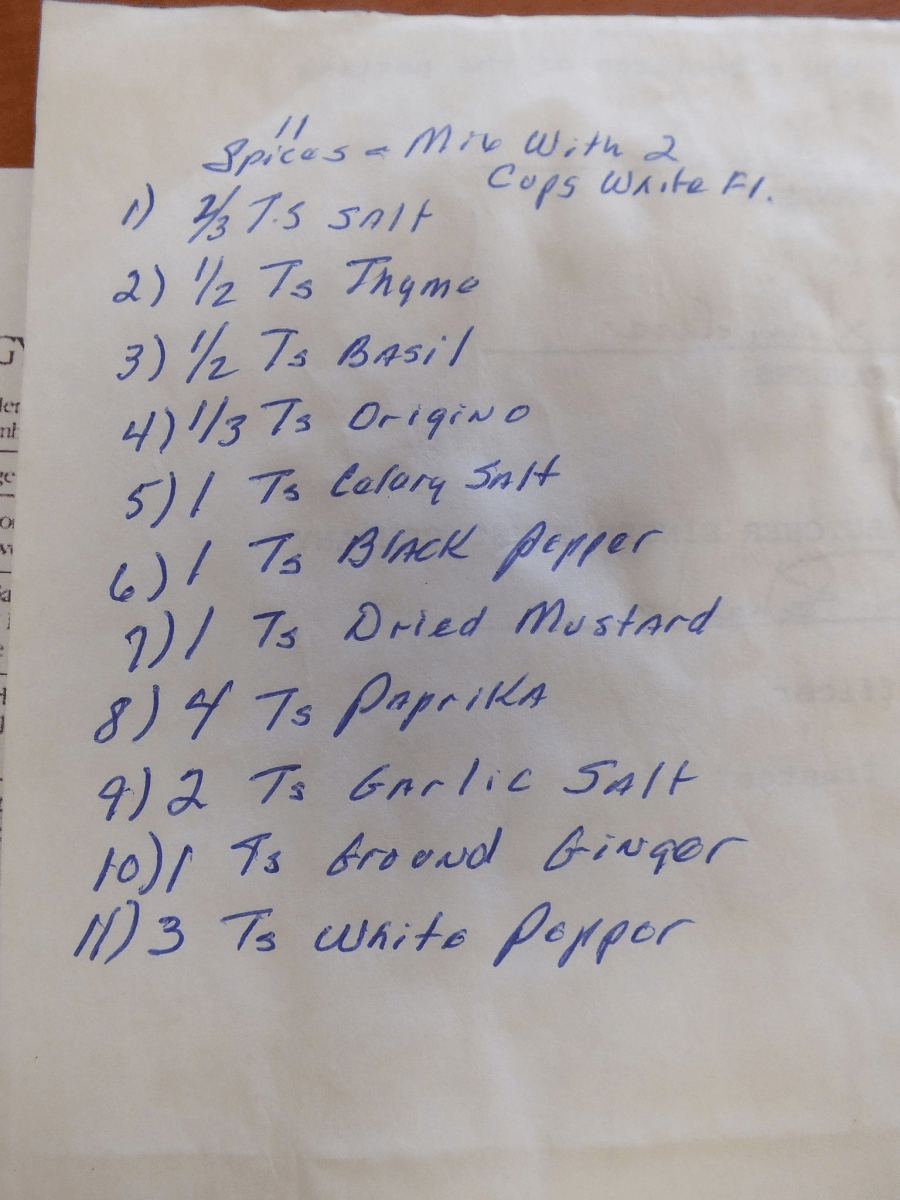 11
Spices - Mix With 2
Cups White Fl.
1) 2/3 T.S SAlt
2) 1/2 Ts Thyme
3) 1/2 Ts BAsil
4) 1/3 Ts OrigiNo
5) 1 Ts Celery SAlt
6) 1 Ts BlAcK Pepper
7) 1 Ts Dried MustArd
8) 4 Ts PAprikA
9) 2 Ts GArlic SAlt
10) 1 Ts Ground Ginger
11) 3 Ts White Pepper